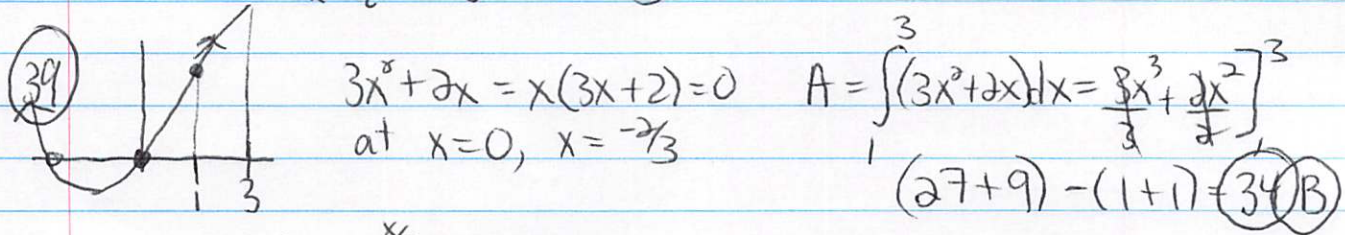 39
3x² + 2x = x(3x+2) = 0
at x=0, x = -2/3
1 3
A = ∫₁³ (3x²+2x)dx = 3x³/3 + 2x²/2 ]₁³
(27+9) - (1+1) = 34 B